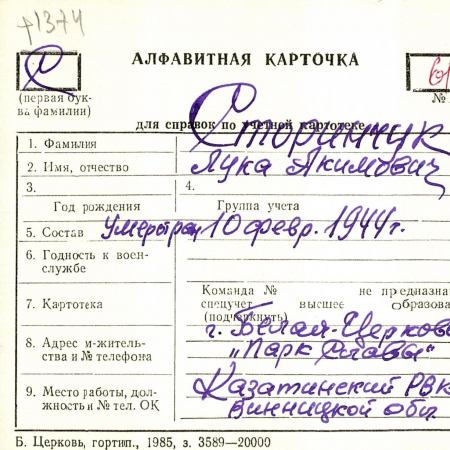 +1374
С
АЛФАВИТНАЯ КАРТОЧКА
(первая бук-
ва фамилии)
№
для справок по учетной картотеке
1. Фамилия Сторинчук
2. Имя, отчество Лука Акимович
3. 4.
Год рождения Группа учета
5. Состав 10 февр. 1944 г.
6. Годность к воен-
службе
Команда № не предназна
7. Картотека спецучет высшее образова
(подчеркнуть)
г. Белая-Церковь
8. Адрес м-житель-
ства и № телефона „Парк Славы"
9. Место работы, дол-
жность и № тел. ОК
Казатинский РВК
Винницкой обл.
Б. Церковь, гортип., 1985, з. 3589—20000